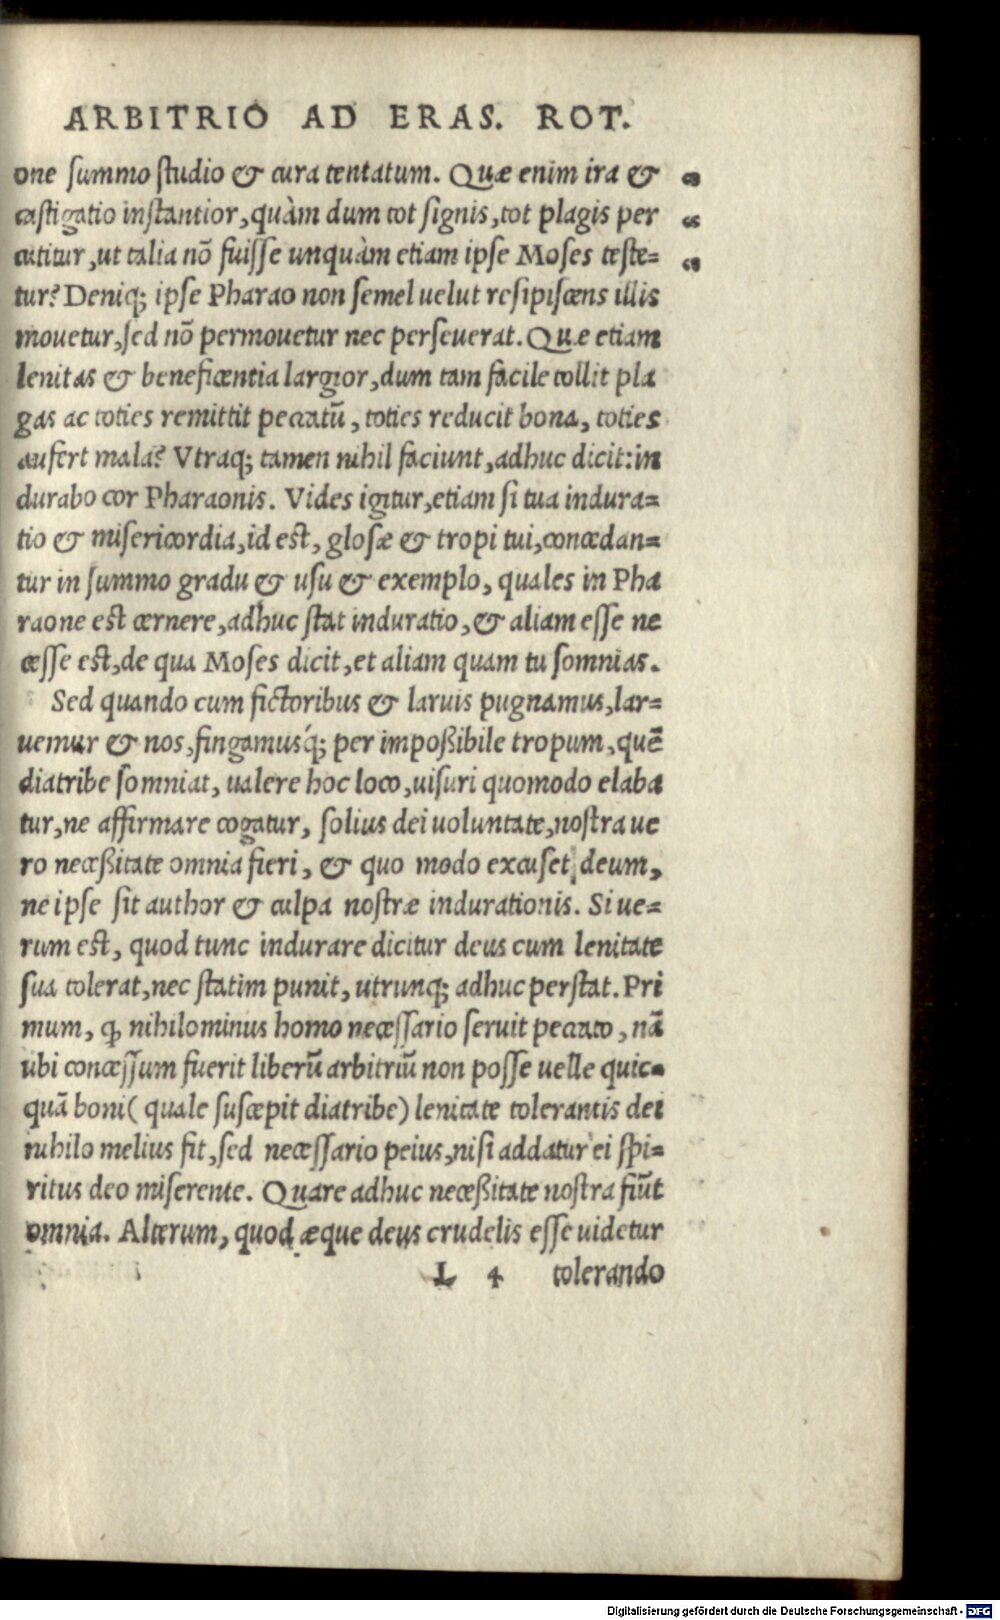 ARBITRIO AD ERAS. ROT.
one summo studio & cura tentatum. Quæ enim ira &
castigatio instantior, quàm dum tot signis, tot plagis per
cutitur, ut talia nõ fuisse unquàm etiam ipse Moses teste=
tur? Deniq; ipse Pharao non semel uelut resipiscens illis
mouetur, sed nõ permouetur nec perseuerat. Quæ etiam
lenitas & beneficentia largior, dum tam facile tollit pla
gas ac toties remittit peccatũ, toties reducit bona, toties
aufert mala? Vtraq; tamen nihil faciunt, adhuc dicit: in
durabo cor Pharaonis. Vides igitur, etiam si tua indura=
tio & misericordia, id est, glosæ & tropi tui, concedan=
tur in summo gradu & usu & exemplo, quales in Pha
raone est cernere, adhuc stat induratio, & aliam esse ne
cesse est, de qua Moses dicit, et aliam quam tu somnias.
Sed quando cum fictoribus & laruis pugnamus, lar=
uemur & nos, fingamusq́; per impoßibile tropum, quẽ
diatribe somniat, ualere hoc loco, uisuri quomodo elaba
tur, ne affirmare cogatur, solius dei uoluntate, nostra ue
ro neceßitate omnia fieri, & quo modo excuset deum,
ne ipse sit author & culpa nostræ indurationis. Si ue=
rum est, quod tunc indurare dicitur deus cum lenitate
sua tolerat, nec statim punit, utrunq; adhuc perstat. Pri
mum, ꝙ nihilominus homo necessario seruit peccato, nã
ubi concessum fuerit liberũ arbitriũ non posse uelle quic=
quã boni (quale suscepit diatribe) lenitate tolerantis dei
nihilo melius fit, sed necessario peius, nisi addatur ei spi=
ritus deo miserente. Quare adhuc neceßitate nostra fiũt
omnia. Alterum, quod æque deus crudelis esse uidetur
L 4 tolerando
Digitalisierung gefördert durch die Deutsche Forschungsgemeinschaft - DFG